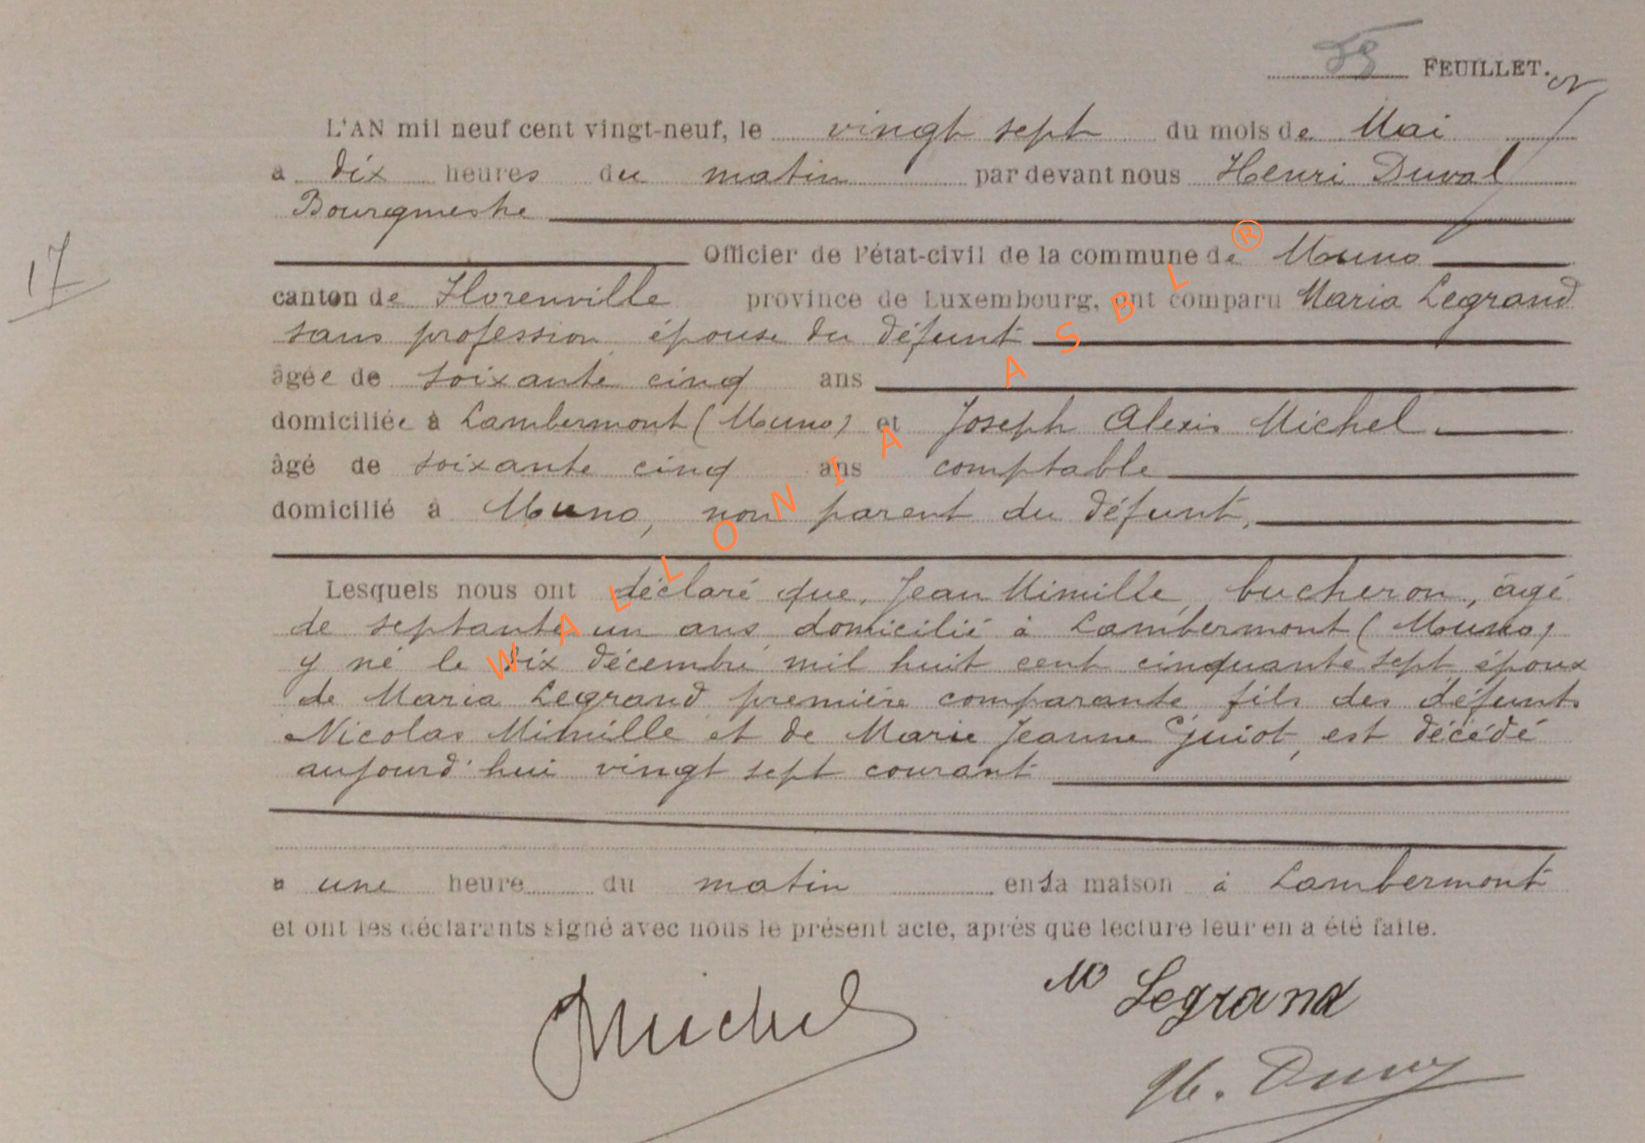 58 FEUILLET.
L'AN mil neuf cent vingt-neuf, le vingt sept du mois de Mai
a dix heures du matin par devant nous Henri Duval
Bourgmestre
Officier de l'état-civil de la commune de Muno
17
canton de Florenville province de Luxembourg, ont comparu Maria Legrand
sans profession, épouse du défunt
âgée de soixante cinq ans
domiciliée à Lambermont (Muno) et Joseph Alexis Michel
âgé de soixante cinq ans comptable
domicilié à Muno, non parent du défunt,
Lesquels nous ont déclaré que, Jean Mimille, bucheron, âgé
de septante un ans domicilié à Lambermont (Muno)
y né le dix décembre mil huit cent cinquante sept, époux
de Maria Legrand première comparante, fils des défunts
Nicolas Mimille et de Marie Jeanne Guiot, est décédé
aujourd'hui vingt sept courant
a une heure du matin en sa maison à Lambermont
et ont les déclarants signé avec nous le présent acte, après que lecture leur en a été faite.
Michel
M Legrand
H. Duval
WALLONIA ASBL ®